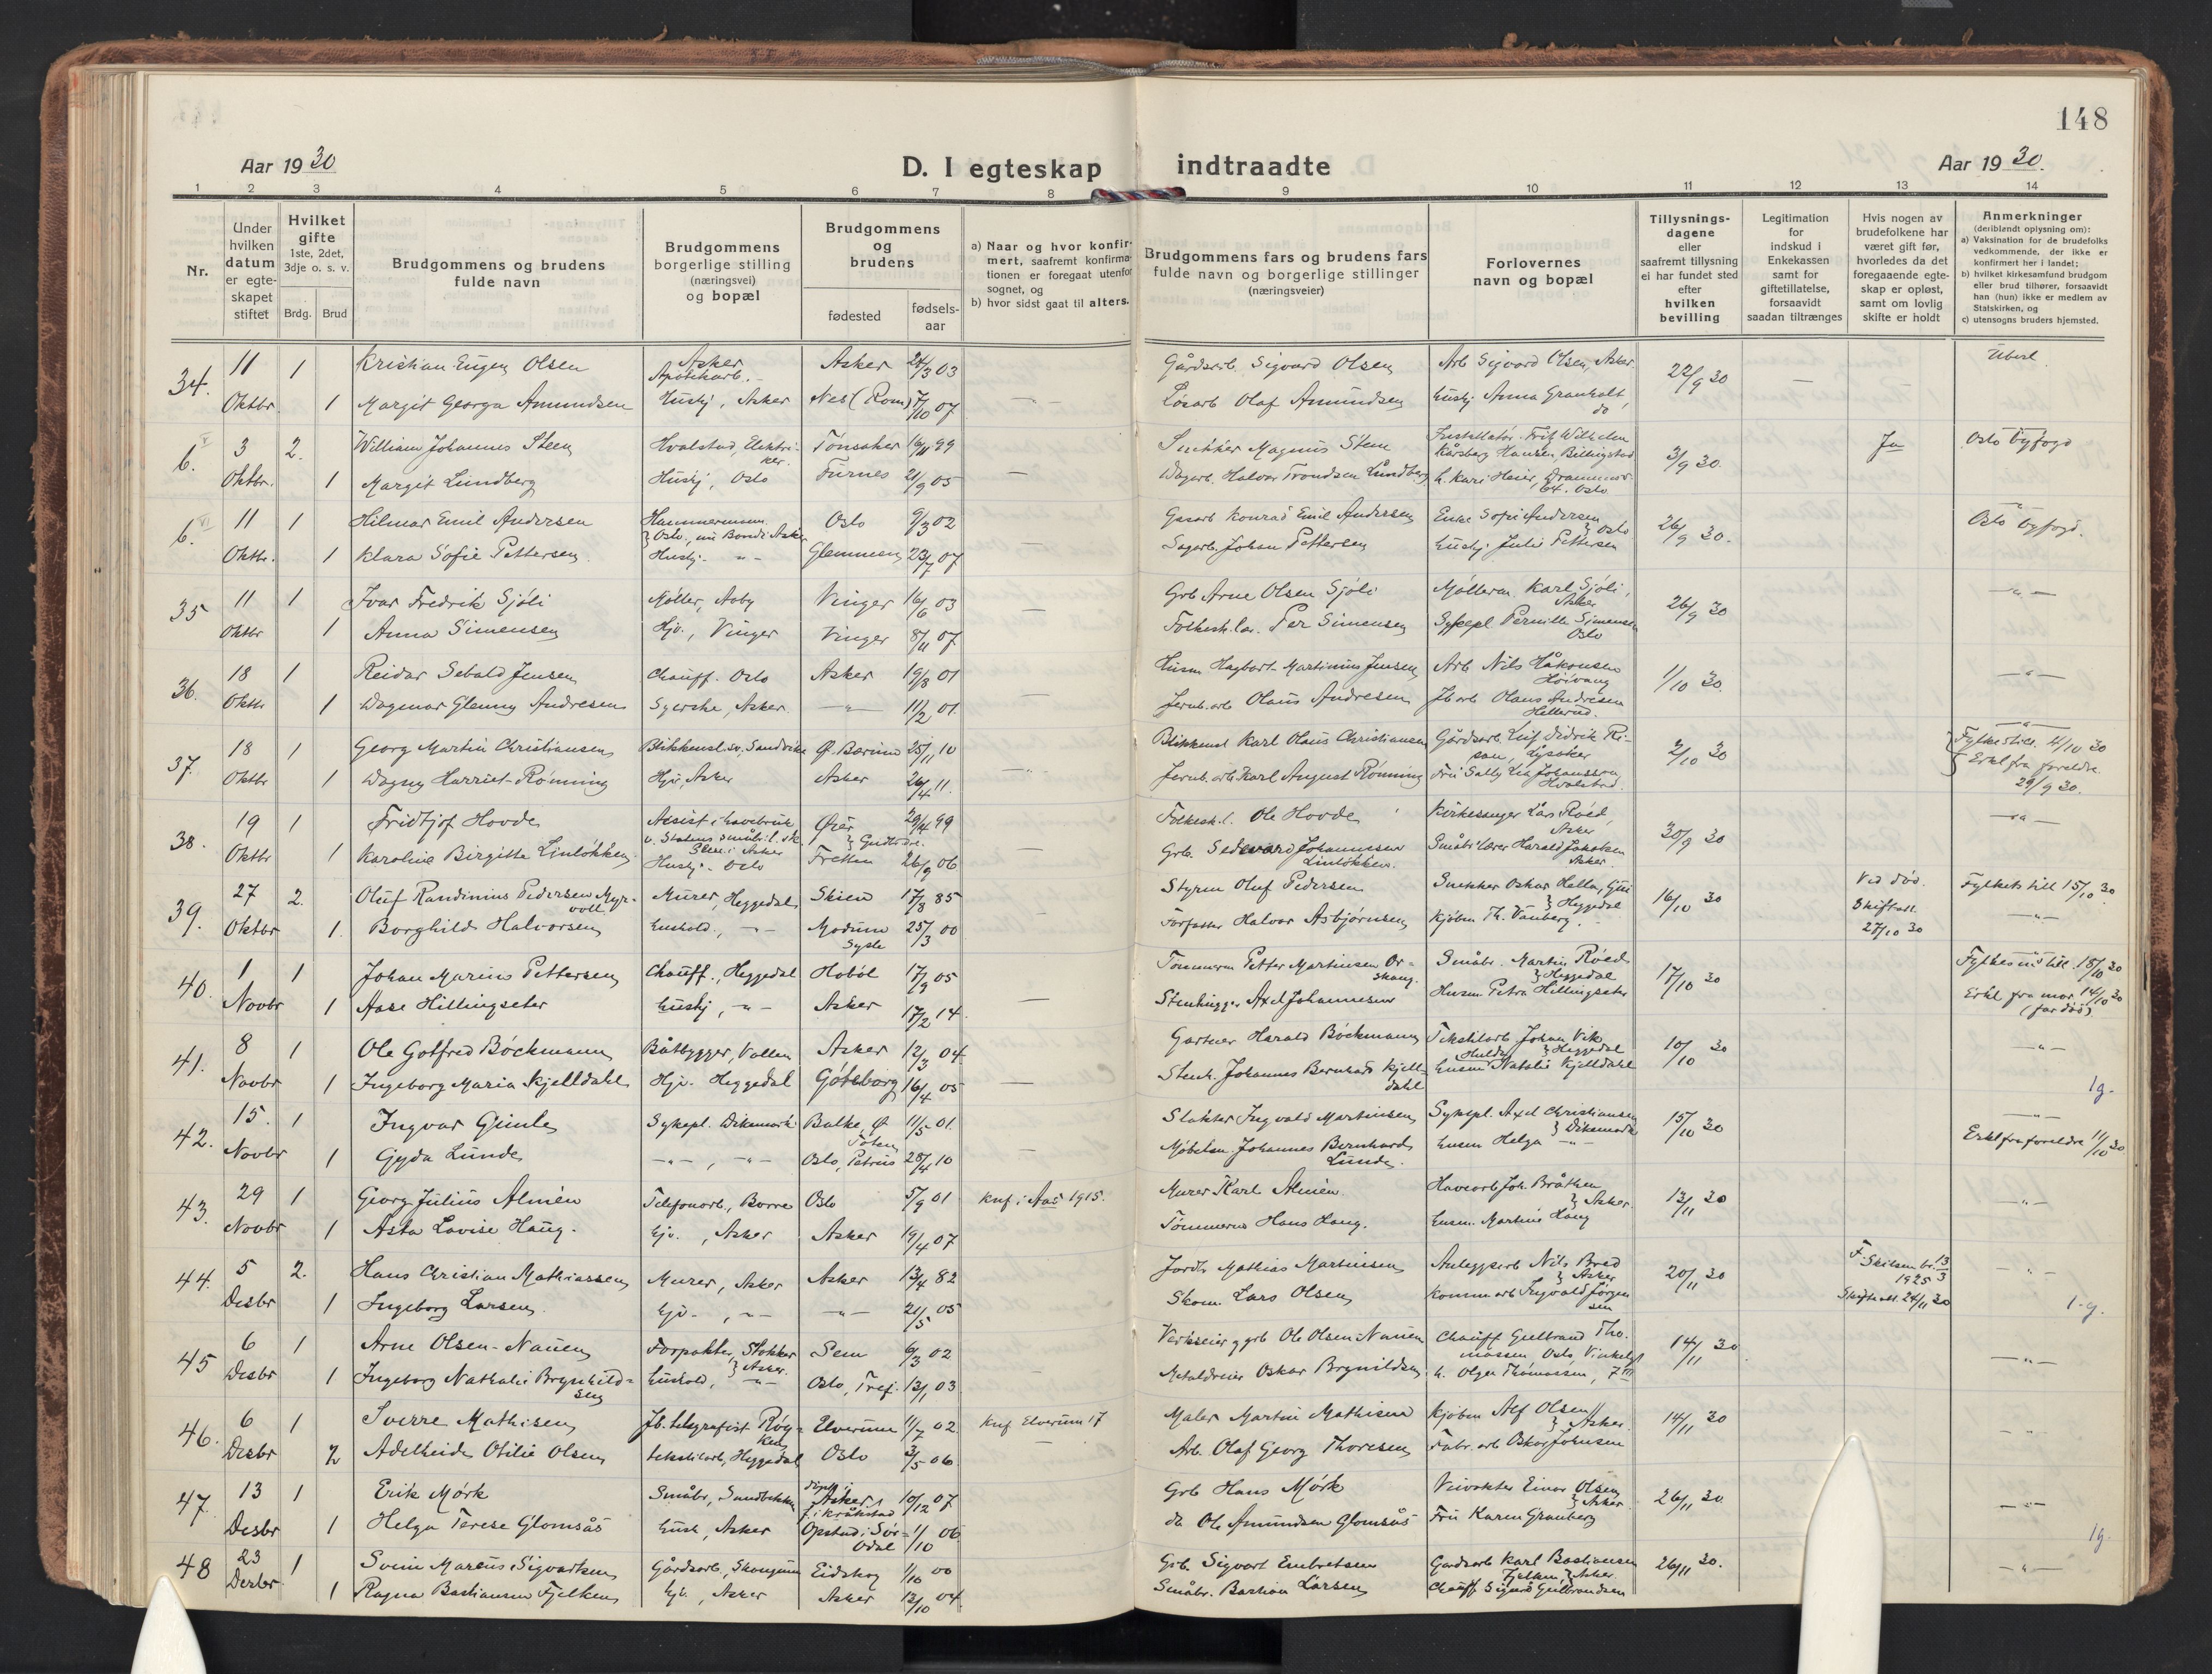 148
Aar 1930
D. I egteskap indtraadte
Aar 1930.
1 2 3 4 5 6 7 8 9 10 11 12 13 14
Nr.
Under hvilken datum er egte-skapet stiftet
Hvilket gifte 1ste, 2det, 3dje o. s. v.
Brdg. Brud
Brudgommens og brudens fulde navn
Brudgommens borgerlige stilling (næringsvei) og bopæl
Brudgommens og brudens
fødested
fødsels-aar
a) Naar og hvor konfir-mert, saafremt konfirma-tionen er foregaat utenfor sognet, og
b) hvor sidst gaat til alters.
Brudgommens fars og brudens fars fulde navn og borgerlige stillinger (næringsveier)
Forlovernes navn og bopæl
Tillysnings-dagene eller saafremt tillysning ei har fundet sted efter hvilken bevilling
Legitimation for indskud i Enkekassen samt for giftetillatelse, forsaavidt saadan tiltrænges
Hvis nogen av brudefolkene har været gift før, hvorledes da det foregaaende egte-skap er opløst, samt om lovlig skifte er holdt
Anmerkninger (deriblandt oplysning om):
a) Vaksination for de brudefolks vedkommende, der ikke er konfirmert her i landet;
b) hvilket kirkesamfund brudgom eller brud tilhører, forsaavidt han (hun) ikke er medlem av Statskirken, og
c) utensogns bruders hjemsted.
34. 11 1 Kristian Eugen Olsen Asker Apotekarb. Asker 24/3 03 Gårdsarb. Sigvard Olsen Arb Sigvard Olsen, Asker 22/9 30 —
Oktbr. 1 Margit Georga Amundsen Hushj, Asker Nes (Rom) 7/10 07 — Løsarb Olaf Amundsen Hushj Anna Granholt, do
6. 3 2. William Johannes Steen Hvalstad, Elektriker. 16/11 99 Snekker Magnus Steen Installatør Fritz Wilhelm Kårsberg Hansen Billingstad 3/9 30. Ja Oslo byfogd
Oktbr. 1 Margit Lundberg Hushj, Oslo Furnes 21/9 05 — Dagarb. Halvor Trondsen Lundberg h. Kari Heier, Drammensv 64. Oslo
6. VI 11 1 Hilmar Emil Andersen Hammermann Oslo, nu Bondi Asker Oslo 9/3 02 Gasarb Konrad Emil Andersen Enke Sofie Andersen } Oslo 26/9 30. Oslo byfogd.
Oktbr. 1 Klara Sofie Pettersen. Hushj. -"- Glemmen 23/7 07 — Sagarb. Johan Pettersen Hushj Julie Pettersen
35 11 1 Ivar Fredrik Sjøli Møller, Aaby Vinger 16/6 03 Grb Arne Olsen Sjøli Møllerm. Karl Sjøli, Asker 26/9 30 -"-
Oktbr 1 Anna Simensen Hjv., Vinger Vinger 8/11 07 — Folkesk.lær. Per Simensen Sykepl Pernille Simensen Oslo
36. 18 1 Reidar Sebald Jensen Chauff. Oslo Asker 19/8 01 Husm Hagbart Martinius Jensen Arb Nils Håkonsen Høivang 1/10 30. -"-
Oktbr 1 Dagmar Glenny Andresen Syerske, Asker. -"- 11/2 01. — Jernb.arb Olaus Andresen Jb arb Olaus Andresen Hellerud.
37. 18 1 Georg Martin Christiansen Blikkensl.sv. Sandvika Ø. Bærum 25/11 10 Blikkensl Karl Olaus Christiansen Gårdsarb. Leif Didrik Risan, Lysaker 2/10 30 -"- Fylkestill. 4/10 30
Oktbr 1 Dagny Harriet Rønning Hjv, Asker Asker 26/4 11. Jernb. arb Karl August Rønning Fru Sally Johanssen Hvalstad. Erkl fra foreldre. 29/9 30.
38. 19 1 Fridtjof Hovde Assist i havebruk v. Statens småbr.l. sk. Asker 29/4 99 Folkesk.l. Ole Hovde Kirkesanger Lars Røed, Asker 30/9 30 -"-
Oktbr 1 Karoline Birgitte Linløkken Hushj. Oslo Fretten 26/9 06 — Grb. Johannesen Linløkken. Småbr.lærer Harald Jakobsen Asker.
39. 27 2. Oluf Randinius Pedersen Myrvoll Murer, Heggedal Skien 17/8 85 Styrm Oluf Pedersen Snekker Oskar } Heggedal 16/10 30 Ved død. Skifteatt. 27/10 30 Fylkets till 15/10 30
Oktbr 1. Borghild Halvorsen Hushold., -"- Modum Sysle 25/3 00 Forfatter Halvor Asbjørnsen Kjøbm Th. Vauberg. -"-
40. 1 1 Johan Marius Pettersen Chauff., Heggedal Hobøl 17/9 05 Tømmerm Petter Martinsen Orskaug. Småbr. Martin Røed } Heggedal 17/10 30 Fylkesm's till. 18/10 30
Novbr 1 Aase Hillingseter Hushj, -"- Asker 17/2 14 — Stenhugger Axel Johannesen Husm Petra Hillingseter Erkl fra mor 14/10 30 (far død)
41. 8 1 Ole Gotfred Böckmann Båtbygger, Vollen Asker 12/3 04 Gartner Harald Böckmann Tekstilarb Johan Vik } Heggedal 10/10 30 -"-
Novbr 1 Ingeborg Maria Kjelldahl Hjv. Heggedal Göteborg 16/4 05 — Stenh. Johannes Bernhard Kjelldahl Husm Hulda Natalie Kjelldahl 1g.
42. 15. 1 Ingvar Gimle Sykepl. Dikemark Balke, Ø Toten 11/5 01 Slakter Ingvald Martinsen Sykepl. Axel Christiansen } Dikemark 15/10 30 -"-
Novbr 1 Gyda Lunde -"-, -"- Oslo, Petrus 28/4 10 — Møbelsn. Johannes Bernhard Lunde. Husm Helga -"- Erkl fra foreldre 11/10 30
43. 29 1 Georg Julius Almén Telefonarb., Borre Oslo 5/9 01 Knf. i Aas 1915. Murer Karl Almén. Havearb Joh. Bråthen } Asker 13/11 30 -"-
Novbr 1 Asta Lovise Haug. Hjv., Asker Asker 19/4 07 Tømmerm Hans Haug. Husm. Martine Haug
44. 5 2. Hans Christian Mathiassen Murer, Asker Asker 13/4 82 Jordbr Mathias Martinsen Anleggsarb Nils Bred } Asker 20/11 30 F. Skilsm.br. 13/3 1925 -"-
Desbr 1 Ingeborg Larsen. Hjv., -"- -"- 21/5 05 Skom. Lars Olsen Komm arb Ingvald Jørgensen Skifteatt. 24/11 30 1.g.
45 6 1 Arne Olsen-Nauen Forpakter, Stokker } Asker. Sem 6/3 02 Verkseier g grb Ole Olsen-Nauen Chauff Gulbrand Thomassen Oslo, Vinkelgt 14/11 30
Desbr 1 Ingeborg Nathalie Brynhildsen Hushold, -"- Oslo, Tref. 13/1 03 — Metaldreier Oskar Brynildsen h. Olga Thomassen, 7 III -"-
46. 6 1 Sverre Mathisen Jb. telegrafist Røyken Elverum 11/7 02. Knf Elverum 17 Maler Martin Mathisen Kjøbm Alf Olsen } Asker. 14/11 30
Desbr 2 Adelheide Otilie Olsen tekstilarb, Heggedal Oslo 3/5 06 — Arb. Olaf Georg Thoresen Fabr. arb Oskar Johnsen -"-
47. 13 1 Erik Mørk Småbr, Sundbekken døpt i Asker, f. i Kråkstad 10/12 07 Grb Hans Mørk Veivokter Einar Olsen } Asker 26/11 30.
Desbr 1 Helga Terese Glomsås Hush, Asker Opstad i Sør-Odal 1/10 06 do Ole Amundsen Glomsås Fru Karen Granberg -"- 1g.
48 23 1 Svein Marcus Sigvartsen Gårdsarb, Skaugum Eidskog 1/10 00 Grb. Sigvart Embretsen Gardsarb Karl Bastiansen Fjelken } Asker. 26/11 30. -"-
Desbr. 1 Ragna Bastiansen Fjelken Hjv., Asker Asker 12/10 04. Småbr. Bastian Larsen Chauff Sigurd Gulbrandsen